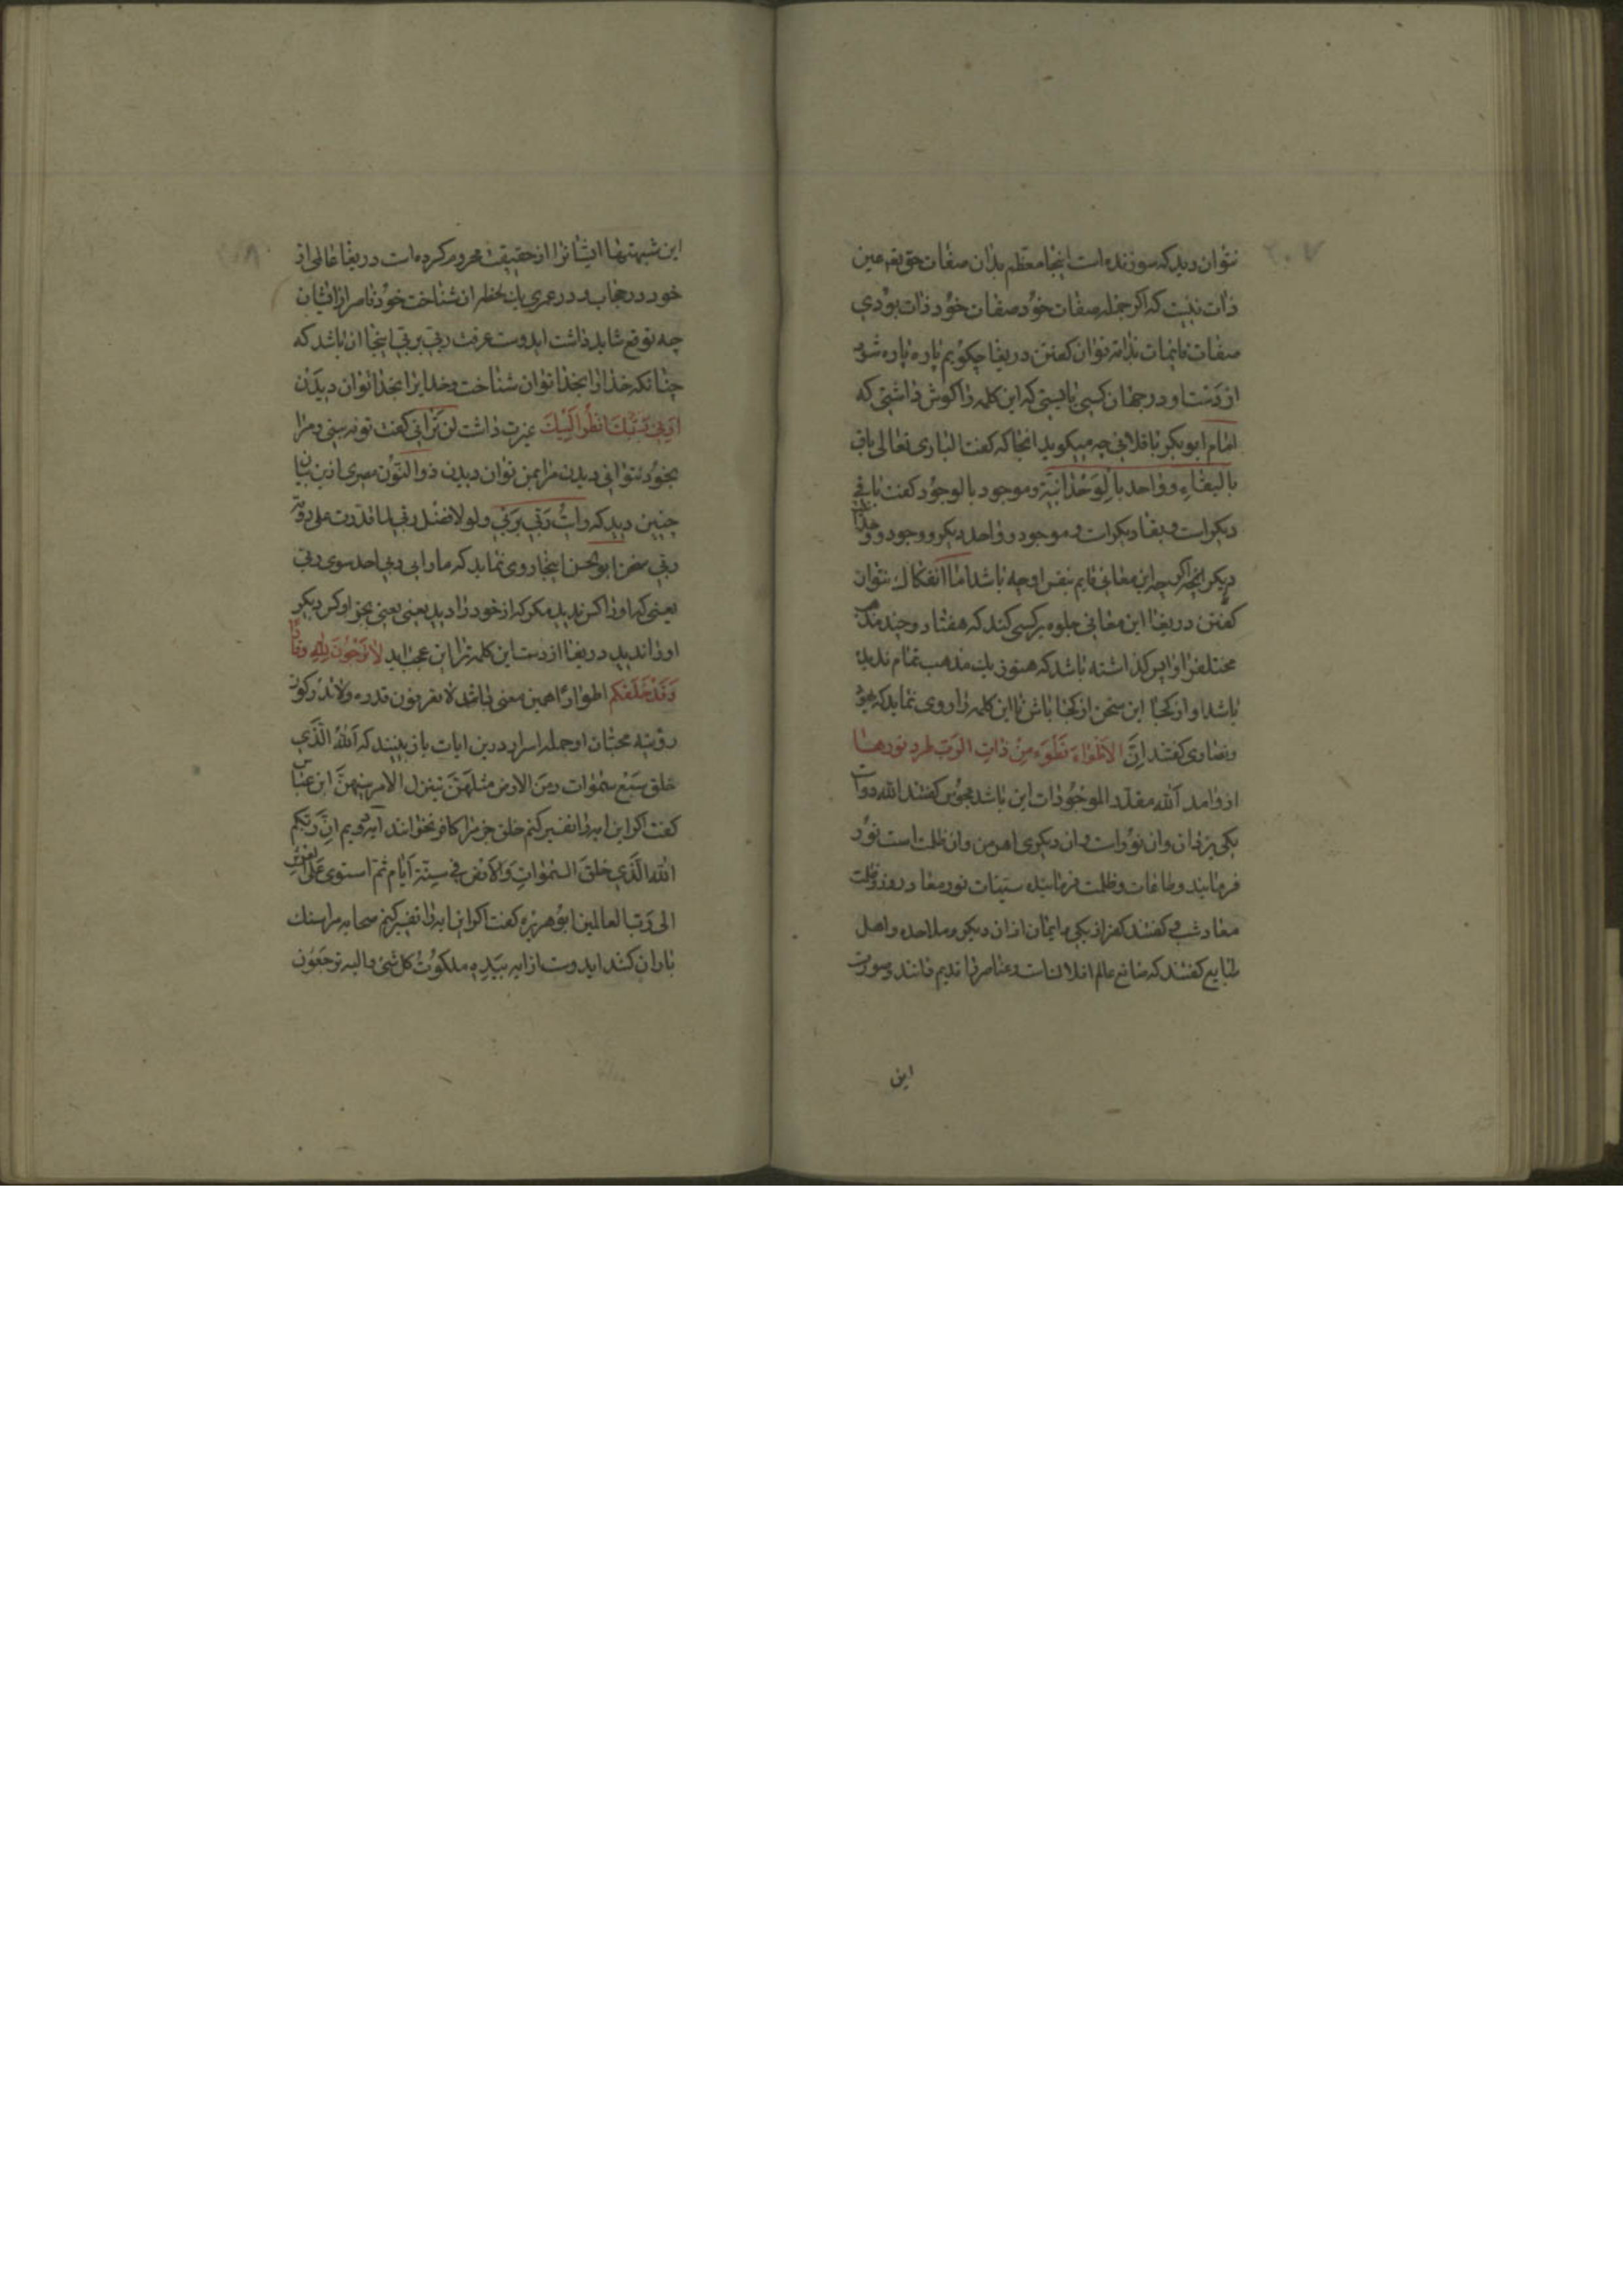 نتوان دید که سوزنده است اینجا معظم بدان صفات حق یقه عین
ذات نیست که اکر جمله صفات خود صفات خود ذات بودی
صفات قایمات بذاته توان کفتن دریغا چکویم پاره پاره شود
از دست او در جهان کسی بایستی که این کلمه را کوش داشتی که
امام ابو بکر باقلانی چه میکوید انجا که کفت الباری تعالی باق
بالبقاء و واحد بالوحدانیة و موجود بالوجود کفت باقی
دیکر است و بقا دیکر است و موجود و واحد دیکر و وجود و وحدا
دیکر انچه اکر چه این معانی قایم بنفس اوچه باشد اما انفکاک نتوان
کفتن دریغا این معانی جلوه بر کسی کند که هفتاد و چند مذهب
مختلف را واپس کذاشته باشد که هنوز یک مذهب تمام ندیده
باشد او از کجا این سخن از کجا باش تا این کلمه ترا روی نماید که یهود
و نصاری کفتند انّ الاظواء تظوء من ذات الرب طرد نورهسا
از وامد الله مقلد الموجودات این باشد مجوس کفتند الله دو است
یکی یزدان وان نور است وان دیکری اهرمن وان ظلمت است نور
فرمایند و طاعات و ظلمت فرمایند سیئات نور معاد روز و ظلمت
معاد شب کفتند کفر از یکی و ایمان از ان دیکر و ملاحده و اهل
طبایع کفتند که صانع عالم افلاک است و عناصر را قدیم دانند و صورت
این
این شبهتها ایشانرا از حقیقت محروم کرده است دریغا غالی از
خود در حجاب و در عمری یک لحظه از شناخت خود قاصر از ایشان
چه توقع شاید داشت ایدوست عرفت ربی بربی اینجا ان باشد که
چنانکه خدا را بخدا توان شناخت و خدایرا بخدا توان دیدن
ارنی انظر الیک غیرت ذاتت لن ترانی کفت تو نه بینی و مرا
بخود نتوانی دیدن مرا بمن توان دیدن ذو النون مصری ازین بیان
چنین دید که رایت ربی بربی و لولا فضل ربی لما قدرت علی رویة
ربی سخن ابو الحسن اینجا روی نماید که ما رای ربی احد سوی ربی
یعنی که او را کس ندید مکر که از خود را دید یعنی یعنی بجز او کس دیکر
او را ندید دریغا از دست این کلمه ترا این عجب اید لا ترجون لله وقارا
وقد خلقکم اطوارا همین معنی باشد لا یعرفون قدره ولا یدرکون
رؤیته محبتان او جمله اسرار درین ایات باز بینند که الله الذی
خلق سبع سموات ومن الارض مثلهن یتنزل الامر بینهن ابن عباس
کفت اکر این ایه را تفسیر کنم خلق جز مرا کافر نخوانند ایه دویم ان ربکم
الله الذی خلق السموات والارض فی ستة ایام ثم استوی علی العرش
الی رب العالمین ابو هریره کفت اکر این ایه را تفسیر کنم صحابه مرا سنک
باران کنند ایدوست از ایه بیده ملکوت کل شئ والیه ترجعون